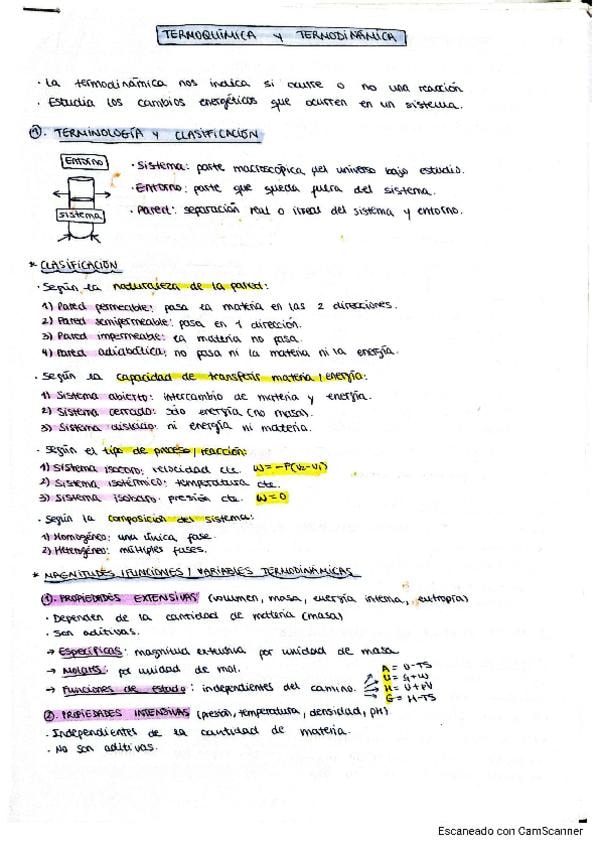 TERMOQUÍMICA Y TERMODINÁMICA
· La termodinámica nos indica si ocurre o no una reacción
· Estudia los cambios energéticos que ocurren en un sistema.
①. TERMINOLOGÍA Y CLASIFICACIÓN
Entorno
sistema
· Sistema: parte macroscópica del universo bajo estudio.
· Entorno: parte que queda fuera del sistema.
· Pared: separación real o irreal del sistema y entorno.
* CLASIFICACIÓN
· Según la naturaleza de la pared:
1) Pared permeable: pasa la materia en las 2 direcciones.
2) Pared semipermeable: pasa en 1 dirección.
3) Pared impermeable: la materia no pasa.
4) Pared adiabática: no pasa ni la materia ni la energía.
· Según la capacidad de transferir materia / energía:
1) Sistema abierto: intercambio de materia y energía.
2) Sistema cerrado: sólo energía (no masa).
3) Sistema aislado: ni energía ni materia.
· Según el tipo de proceso / reacción:
1) Sistema isocoro: velocidad cte. W = -P(V2-V1)
2) Sistema isotérmico: temperatura cte.
3) Sistema isobaro: presión cte. W = 0
· Según la composición del sistema:
1) Homogéneo: una única fase.
2) Heterogéneo: múltiples fases.
* MAGNITUDES / FUNCIONES / VARIABLES TERMODINÁMICAS
①. PROPIEDADES EXTENSIVAS (volumen, masa, energía interna, entropía)
· Dependen de la cantidad de materia (masa)
· Son aditivas.
→ Específicas: magnitud extensiva por unidad de masa
→ Molares: por unidad de mol.
→ Funciones de estado: independientes del camino.
A = U-TS
U = Q+W
H = U+PV
G = H-TS
②. PROPIEDADES INTENSIVAS (presión, temperatura, densidad, pH)
· Independientes de la cantidad de materia.
· No son aditivas.
Escaneado con CamScanner